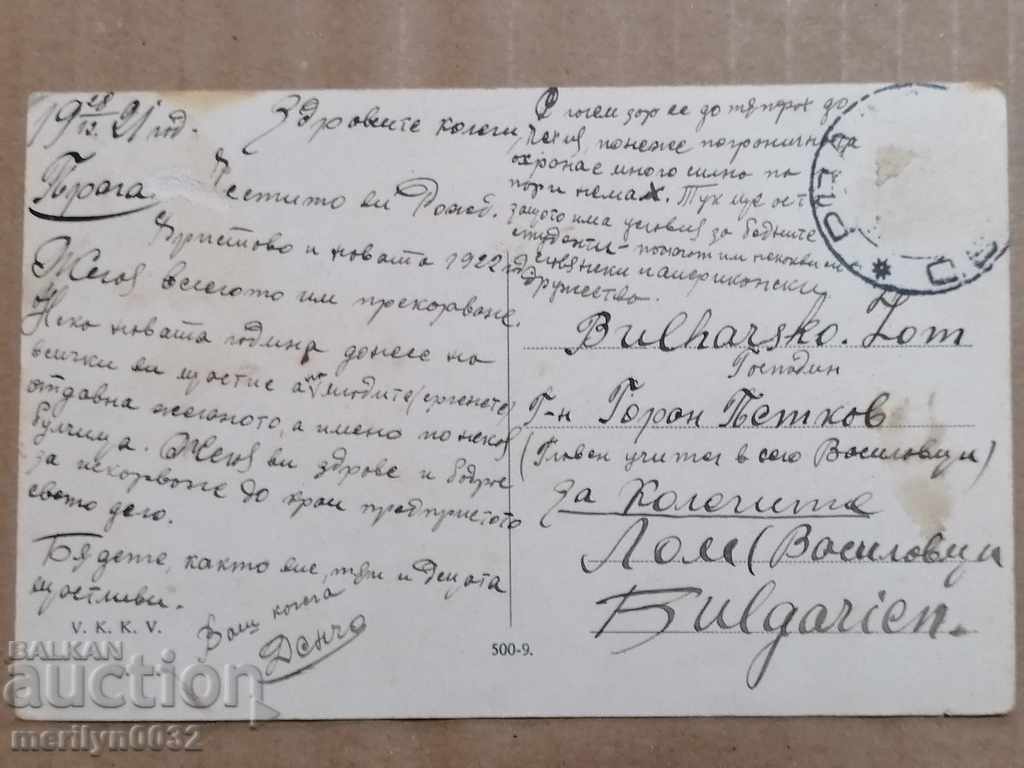 19 28/12. 21 год.
Здравейте колеги,
Прага.
Честито ви Рожд.
Христово и новата 1922 г.
Желая веселото им прекарване.
Нека новата година донесе на
всички ви щастие а на младите (ергенето)
отдавна желаното, а имено по некоя
булчица. Желая ви здраве и бодрос
за искарване до край предприетото
свето дело.
Бядете, както вие, тъй и децата
щастливи.
Ваш колега
Денчо
С голем зор се до тътрих до
Чехия, понеже пограничната
охрана е много силна па
пари немах. Тук ще ост.
защото има условия за бедните
студенти – помогат им некакви
и американски
дружества.
PRAHA
Bulharsko. Lom
Господин
Г-н Горан Петков
(Главен учител в село Василовци)
за колегите
Лом (Василовци
Bulgarien.
V. K. K. V.
500-9.
BALKAN
auction
merilyn0032